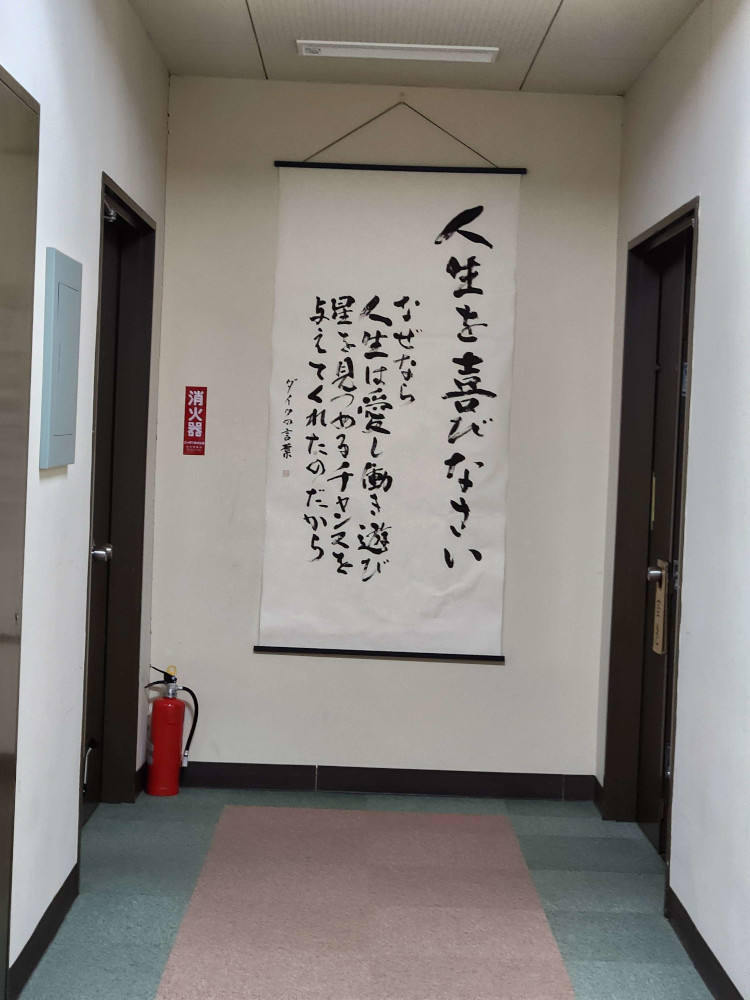 人生を喜びなさい
なぜなら
人生は愛し働き遊び
星を見つめるチャンスを
与えてくれたのだから
ダイクの言葉
消火器